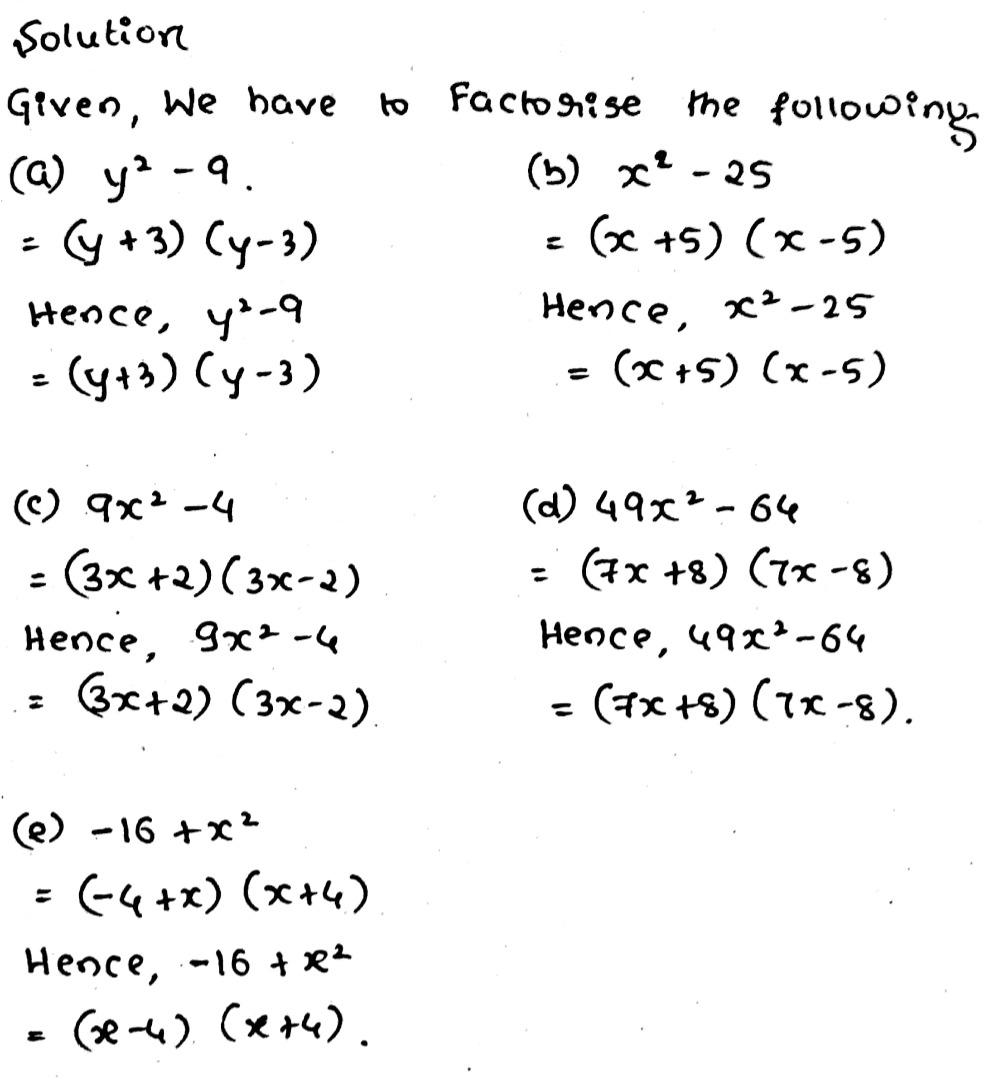 Solution
Given, We have to Factorise the following
(a) y² - 9.
= (y + 3) (y-3)
Hence, y²-9
= (y+3) (y-3)
(b) x² - 25
= (x +5) (x -5)
Hence, x² - 25
= (x +5) (x -5)
(c) 9x² - 4
= (3x +2) (3x-2)
Hence, 9x² - 4
= (3x+2) (3x-2).
(d) 49x² - 64
= (7x +8) (7x -8)
Hence, 49x² - 64
= (7x +8) (7x -8).
(e) -16 + x²
= (-4 +x) (x+4)
Hence, -16 + x²
= (x-4) (x+4).